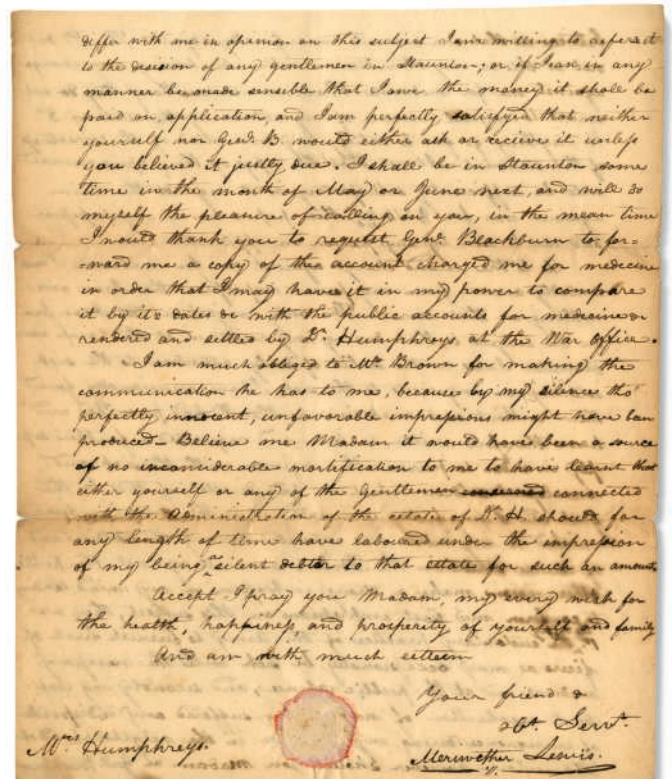 differ with me in opinion on this subject I am willing to asperit
to the decision of any gentlemen in Staunton; or if I can in any
manner be made sensible that I owe the money it shall be
paid on application, and I am perfectly satisfyed that neither
yourself nor Genl. B. would either ask or recieve it unless
you believed it justly due. I shall be in Staunton some
time in the month of May or June next, and will do
myself the pleasure of calling on you, in the mean time
I would thank you to request Genl. Blackburn to for=
=ward me a copy of the account charged me for medicine
in order that I may have it in my power to compare
it by it's dates &c with the public accounts for medicine &c
rendered and settled by Dr. Humphreys at the War Office.
I am much obliged to Mr. Brown for making the
communication he has to me, because by my silence tho'
perfectly innocent, unfavorable impressions might have been
produced— Believe me Madam it would have been a source
of no inconsiderable mortification to me to have learnt that
either yourself or any of the Gentlemen concerned connected
with the Administration of the estate of Dr. H. should for
any length of time have laboured under the impression
of my being a silent debtor to that estate for such an amount
Accept I pray you Madam, my every wish for
the health, happiness, and prosperity of yourself and family
And am with much esteem
Your friend &
Obt. Servt.
Meriwether Lewis.
Mrs Humphreys.